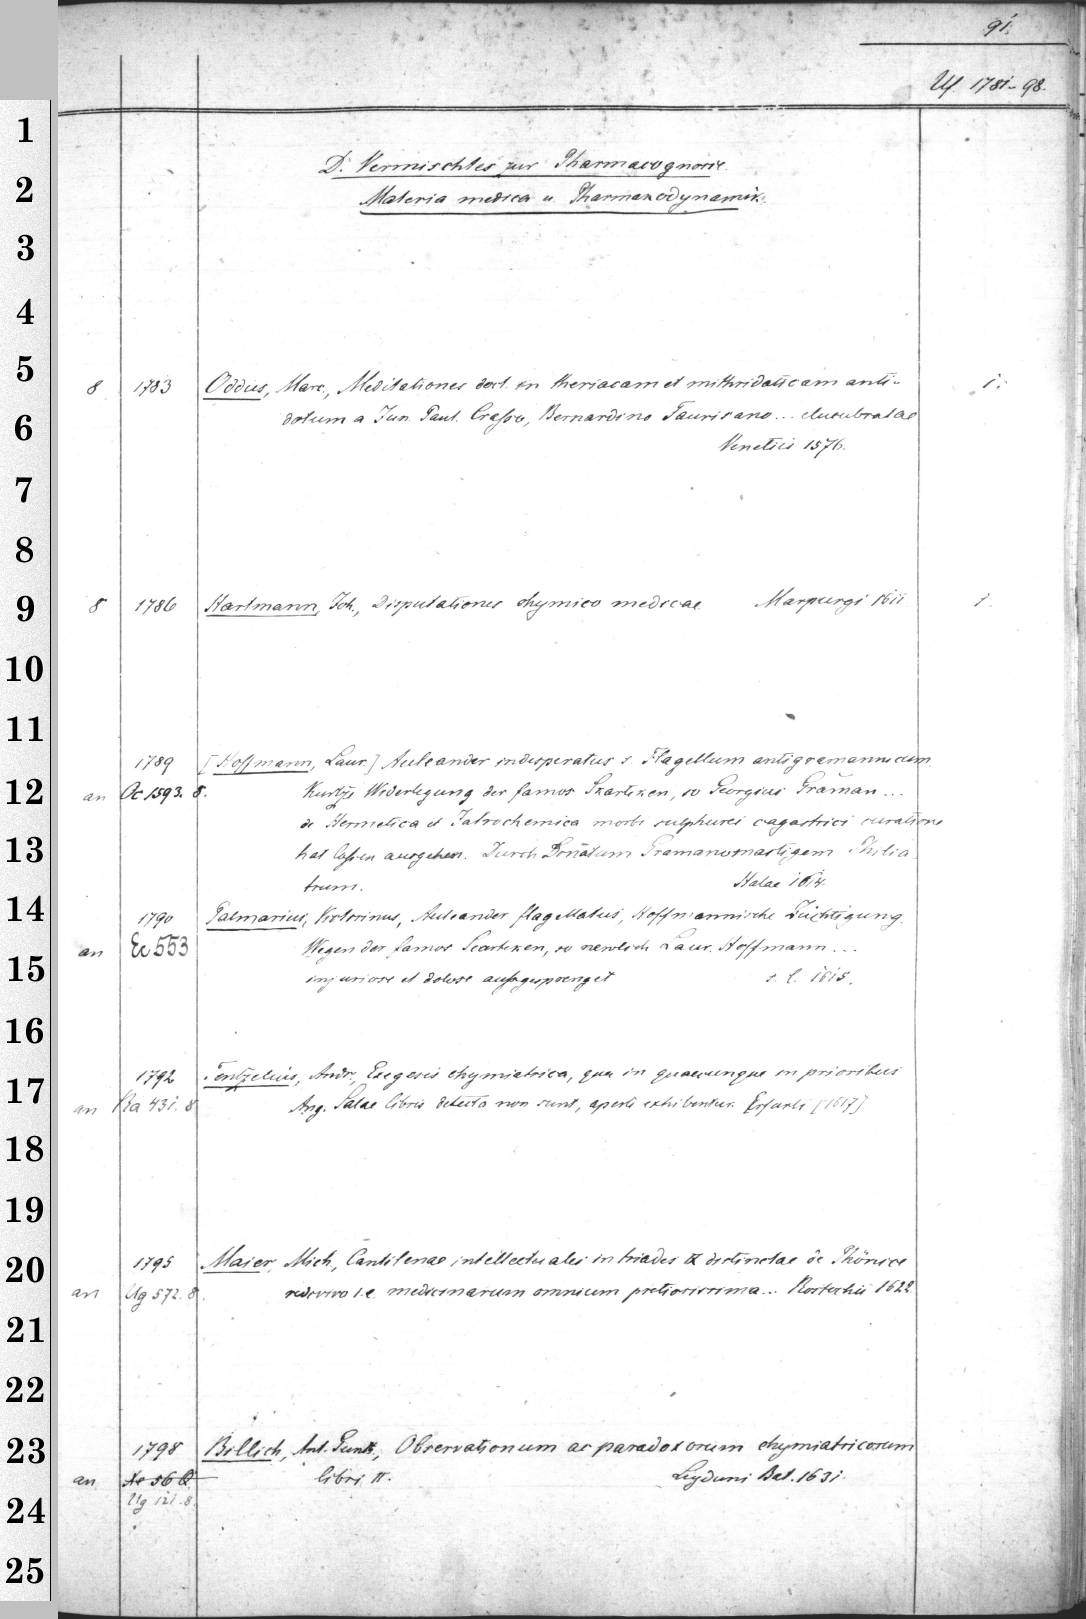 91.
Uf. 1781-98.
D. Vermischtes zur Pharmacognosie
Materia medica u. Pharmakodynamik.
8 1783 Oddus, Marc., Meditationes doct. in theriacam et mithridaticam anti- 1.
dotum a Jun. Paul. Crasso, Bernardino Taurisano ... elucubratae
Venetiis 1576.
8 1786 Hartmann, Joh., Disputationes chymico medicae Marpurgi 1611 1.
1789 [Hoffmann, Laur.] Auleander indesperatus s. Flagellum antigramannicum
an Oc 1593. 8. Kurtze Widerlegung der famos Skarteken, so Georgius Graman ...
de Hermetica et Jatrochemica morbi sulphurei cagastrici curatione
hat lassen ausgehen. Durch Gramanomastigem Philia
trum. Halae 1614.
1790 Palmarius, Auleander flagellatus, Hoffmannische Züchtigung.
an Ec 553 Wegen der famos Scarteken, so newlich Laur. Hoffmann ...
injuriose et dolose aussgesprenget s. l. 1615.
1792 Tentzelius, Andr., Exegesis chymiatrica, qua in quaecunque in prioribus
an Ra 431. 8 Ang. Salae libris detecta non sunt, aperte exhibentur. Erfurti [1617]
1795 Maier, Mich., Cantilenae intellectuales in triadas distinctae de Phönice
an Ug 572. 8. redivivo i. e. medicinarum omnium pretiosissima ... Rostochii 1622.
1798 Billich, Ant. Günth., Observationum ac paradoxorum chymiatricorum
an Xe 56 Q libri II. Lugduni Bat. 1631.
Ug 121. 8.
1
2
3
4
5
6
7
8
9
10
11
12
13
14
15
16
17
18
19
20
21
22
23
24
25